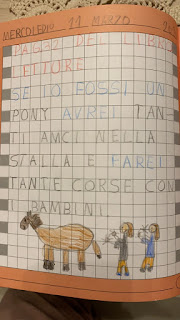 MERCOLEDÌ 11 MARZO
PAG 20 DEL LIBRO
LETTORE
SE IO FOSSI UN
PONY AVREI TAN
TI AMCI NELLA
STALLA E FAREI
TANTE CORSE CON
I BAMBINI.